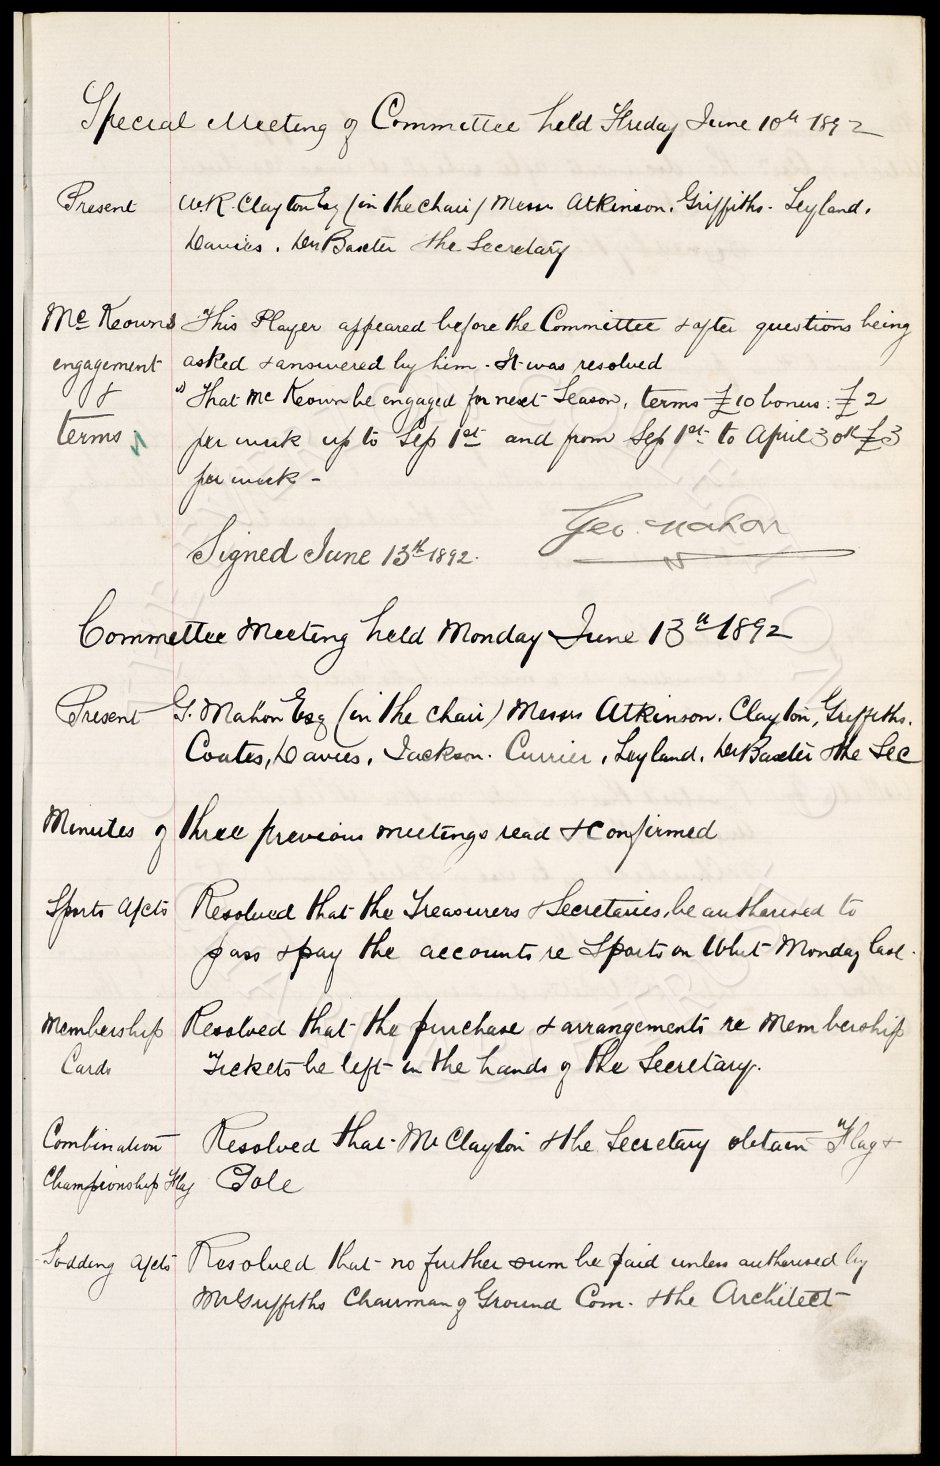 Special Meeting of Committee held Friday June 10th 1892
Present W.R. Clayton Esq (in the chair) Messrs Atkinson, Griffiths. Leyland,
Davies, Dr Baxter & the Secretary
Mc Keowns This Player appeared before the Committee & after questions being
engagement asked & answered by him. It was resolved
& 1) That Mc Keown be engaged for next Season, terms £10 bonus: £2
terms per week up to Sep 1st and from Sep 1st to April 30th £3
per week -
Geo. Mahon
Signed June 13th 1892.
Committee Meeting held Monday June 13th 1892
Present G. Mahon Esq (in the chair) Messrs Atkinson. Clayton, Griffiths.
Coates, Davies, Jackson. Currier, Leyland, Dr Baxter & the Sec
Minutes of three previous meetings read & confirmed
Sports a/cts Resolved that the Treasurers & Secretaries, be authorised to
pass & pay the accounts re Sports on Whit Monday last.
Membership Resolved that the purchase & arrangements re Membership
Cards Tickets be left in the hands of the Secretary.
Combination Resolved that Mr Clayton & the Secretary obtain Flag &
Championship Flag Pole
Sodding a/cts Resolved that no further sum be paid unless authorised by
Mr Griffiths Chairman of Ground Com. & the Architect